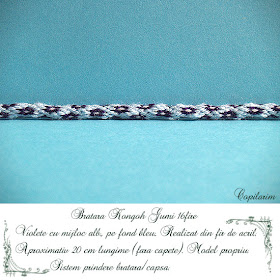 Copilarim
Bratara Kongoh Gumi 16fire
Violete cu mijloc alb, pe fond bleu. Realizat din fir de acril.
Aproximativ 20 cm lungime (fara capete). Model propriu
Sistem prindere bratara: capsa.